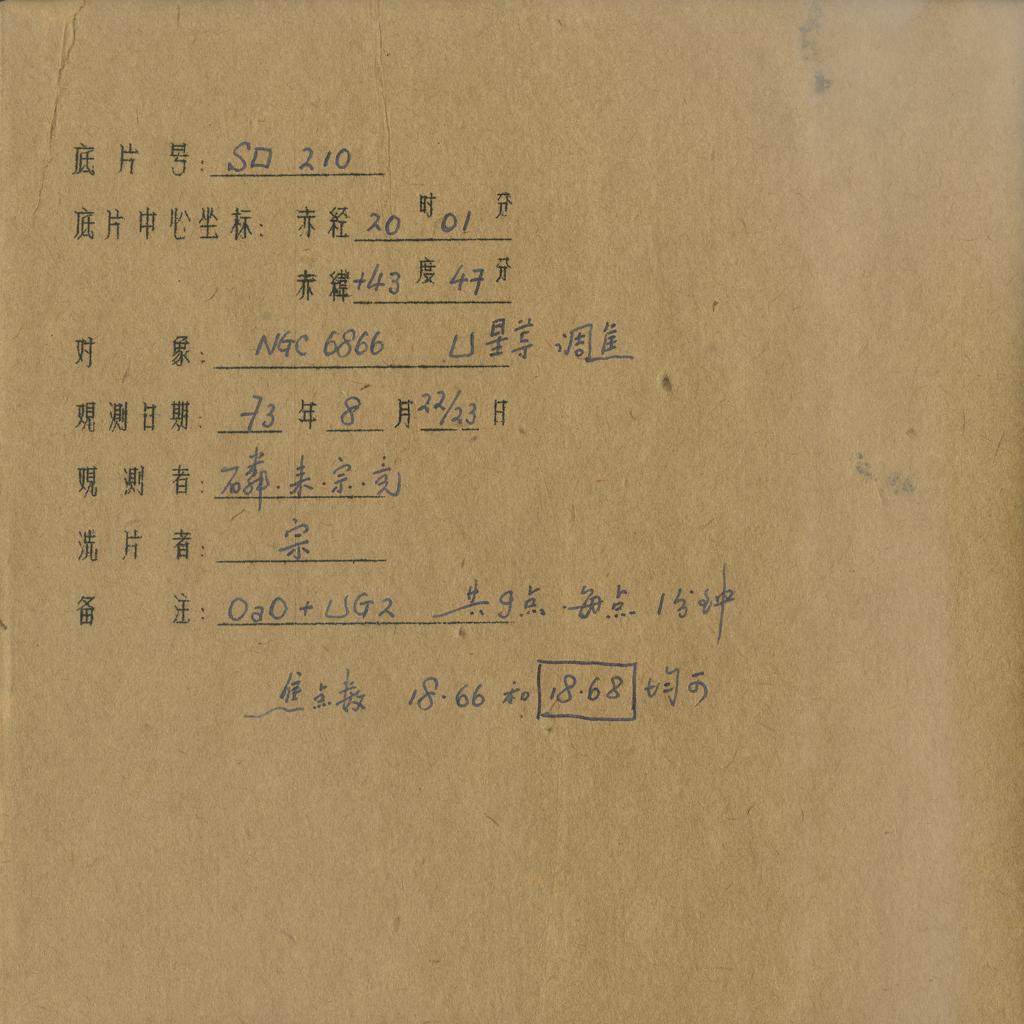 底片号: SO 210
底片中心坐标: 赤经 20 时 01 分
赤緯 +43 度 47 分
对象: NGC 6866 U星等 调焦
观测日期: 73 年 8 月 22/23 日
观测者: 磷·来·宗·竞
洗片者: 宗
备注: OaO + UG2 共9点·每点 1分钟
焦点数 18.66 和 18.68 均可